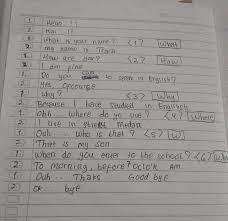 1 Hello..!!
2 Hai..!!
1 What is your name? <1> What
2 my name is Tiara
1 How are you? <2> How
2 I am fine
1 Do you can to speak in English?
2 Yes, Ofcourse
1 Why? <3> Why
2 Because I have studied in English
1 Ohh.. Where do you live? <4> Where
2 I live in street Medan
1 Ooh... who is that? <5> W
2 That is my son
1 When do you enter to the school? <6> Wh
2 To morning, before 7 o'clok Am
1 Ouh.. Thaks Good bye
2 Ok... bye